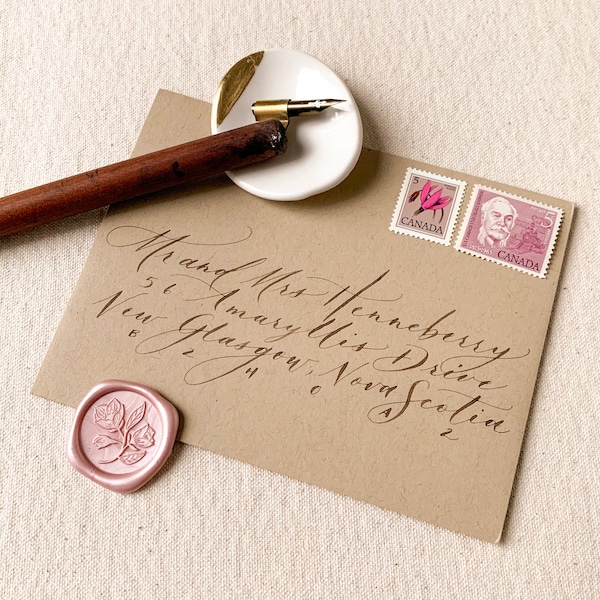 5
CANADA
5
CANADA
Mr and Mrs Henneberry
56 Amaryllis Drive
New Glasgow, Nova Scotia
B2H 0A2